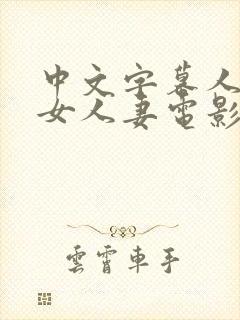 中文字幕人
女人妻电影
雲霄車手